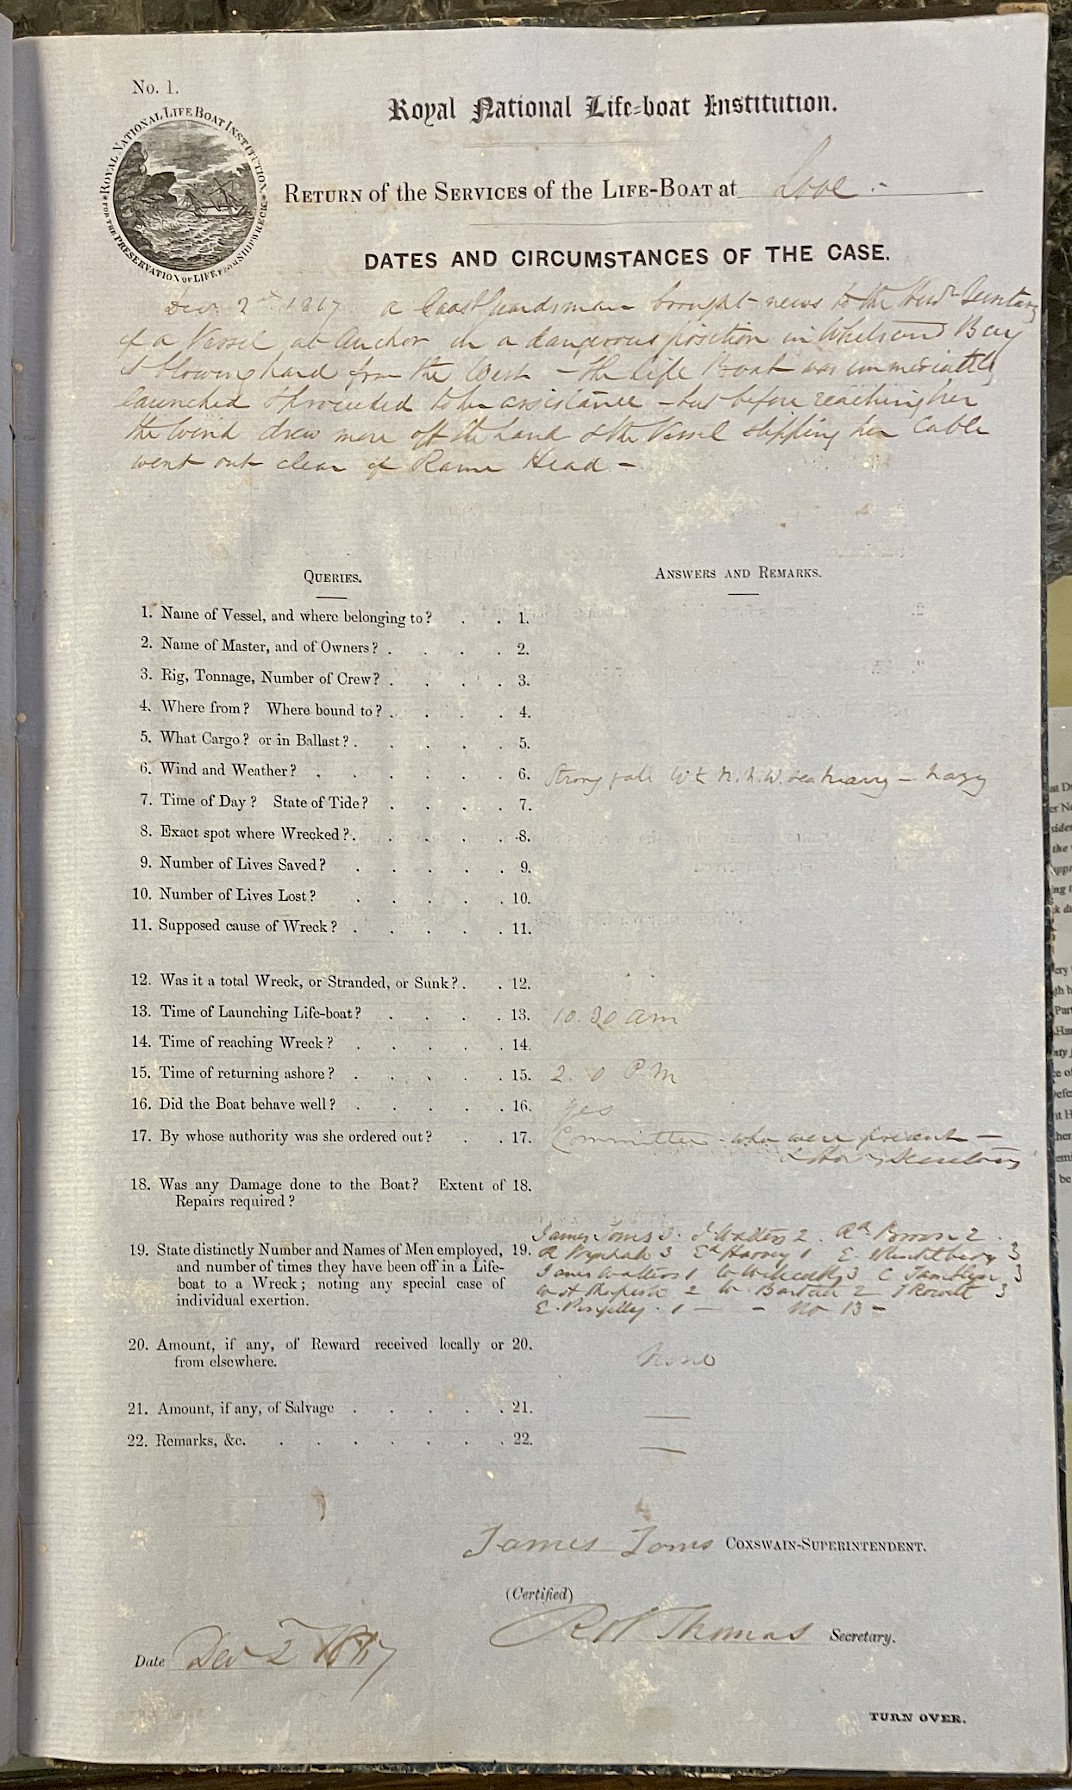 No. 1.
ROYAL NATIONAL LIFE BOAT INSTITUTION FOR THE PRESERVATION OF LIFE FROM SHIPWRECK
Royal National Life-boat Institution.
RETURN of the SERVICES of the LIFE-BOAT at Looe -
DATES AND CIRCUMSTANCES OF THE CASE.
Decr 2nd 1867 a Coast Guardsman brought news to the Secretary
of a Vessel at Anchor in a dangerous position in Whitsand Bay
it blowing hard from the West - the Life Boat was immediately
launched & proceeded to her assistance - but before reaching her
the Wind drew more off the Land & the Vessel slipping her Cable
went out clear of Rame Head -
QUERIES.
ANSWERS AND REMARKS.
1. Name of Vessel, and where belonging to? 1.
2. Name of Master, and of Owners? 2.
3. Rig, Tonnage, Number of Crew? 3.
4. Where from? Where bound to? 4.
5. What Cargo? or in Ballast? 5.
6. Wind and Weather? 6. Strong gale W & N.N.W. sea heavy - hazy
7. Time of Day? State of Tide? 7.
8. Exact spot where Wrecked? 8.
9. Number of Lives Saved? 9.
10. Number of Lives Lost? 10.
11. Supposed cause of Wreck? 11.
12. Was it a total Wreck, or Stranded, or Sunk? 12.
13. Time of Launching Life-boat? 13. 10.30 am
14. Time of reaching Wreck? 14.
15. Time of returning ashore? 15. 2.0 P M
16. Did the Boat behave well? 16. yes
17. By whose authority was she ordered out? 17. Committee - who were present -
& Hony Secretary
18. Was any Damage done to the Boat? Extent of 18.
Repairs required?
James Toms 3. J Walters 2. Rd Brown 2.
19. State distinctly Number and Names of Men employed, 19. 3 Ed Harvey 1 E. 3
and number of times they have been off in a Life-
James Walters 1 3 C 3
boat to a Wreck; noting any special case of
2 W. 2 3
individual exertion.
E. Pengelly . 1 - - No 13 -
20. Amount, if any, of Reward received locally or 20.
from elsewhere. None
21. Amount, if any, of Salvage 21. —
22. Remarks, &c. 22. —
James Toms COXSWAIN-SUPERINTENDENT.
(Certified)
Thomas Secretary.
Date Decr 2 1867
TURN OVER.